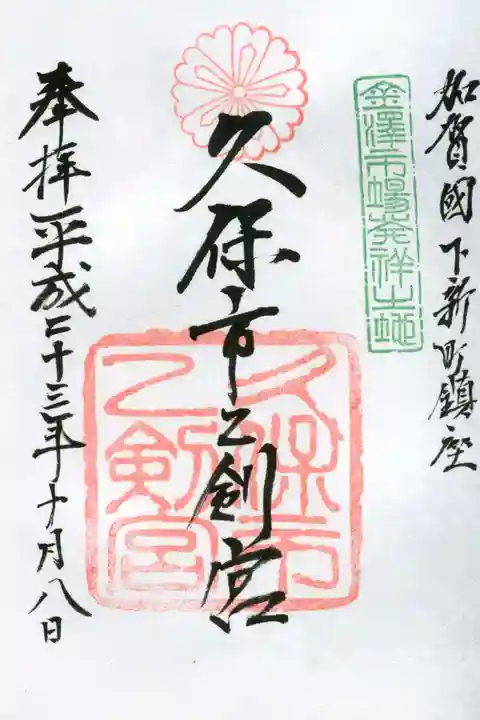 加賀國下新町鎮座
金澤市場発祥之地
久保市乙剣宮
久保市
乙剣宮
奉拝平成二十三年十月八日